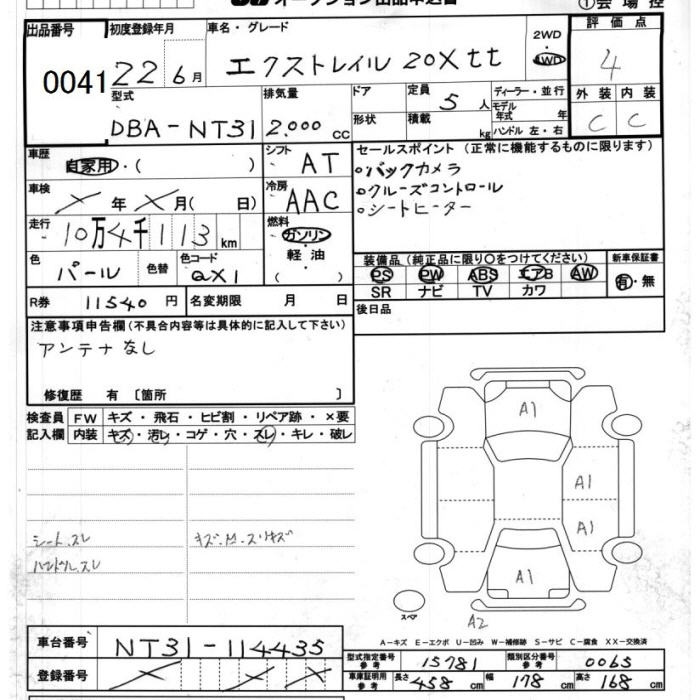 オークション出品申込書
①会場控
出品番号
0041
初度登録年月
22 6月
車名・グレード
エクストレイル 20Xtt
2WD
・
4WD
評価点
4
外装 内装
C C
型式
DBA-NT31
排気量
2.000 cc
ドア
形状
定員 5 人
積載 kg
ディーラー・並行
モデル年式 年
ハンドル 左・右
車歴
自家用・( )
シフト
AT
セールスポイント (正常に機能するものに限ります)
。バックカメラ
。クルーズコントロール
。シートヒーター
車検
× 年 × 月( 日)
冷房
AAC
走行
10万4千113 km
燃料
ガソリン
・
軽油
・
( )
色
パール
色替
色コード
QX1
装備品 (純正品に限り〇をつけてください)
PS PW ABS エアB AW
SR ナビ TV カワ
新車保証書
有・無
R券 11540 円
名変期限 月 日
後日品
注意事項申告欄 (不具合内容等は具体的に記入して下さい)
アンテナなし
修復歴 有 〔箇所 〕
検査員 記入欄
FW キズ・飛石・ヒビ割・リペア跡・×要
内装 キズ・汚レ・コゲ・穴・スレ・キレ・破レ
シート.スレ
ハンドル.スレ
キズ.H.スリキズ
A1
A1
A1
A1
スペア
A2
A-キズ E-エクボ U-凹み W-補修跡 S-サビ C-腐食 XX-交換済
車台番号 NT31-114435
登録番号
型式指定番号 参考 15781
類別区分番号 参考 0065
車庫証明用 参考 長さ 458 cm 幅 178 cm 高さ 168 cm